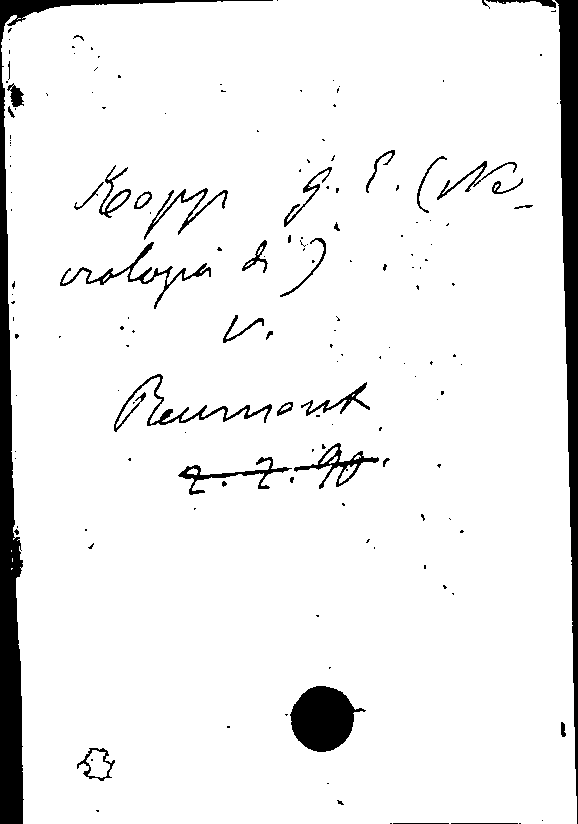 Kopp G. E. (Ne-
crologia di)
v.
Reumont
z. z. 90.